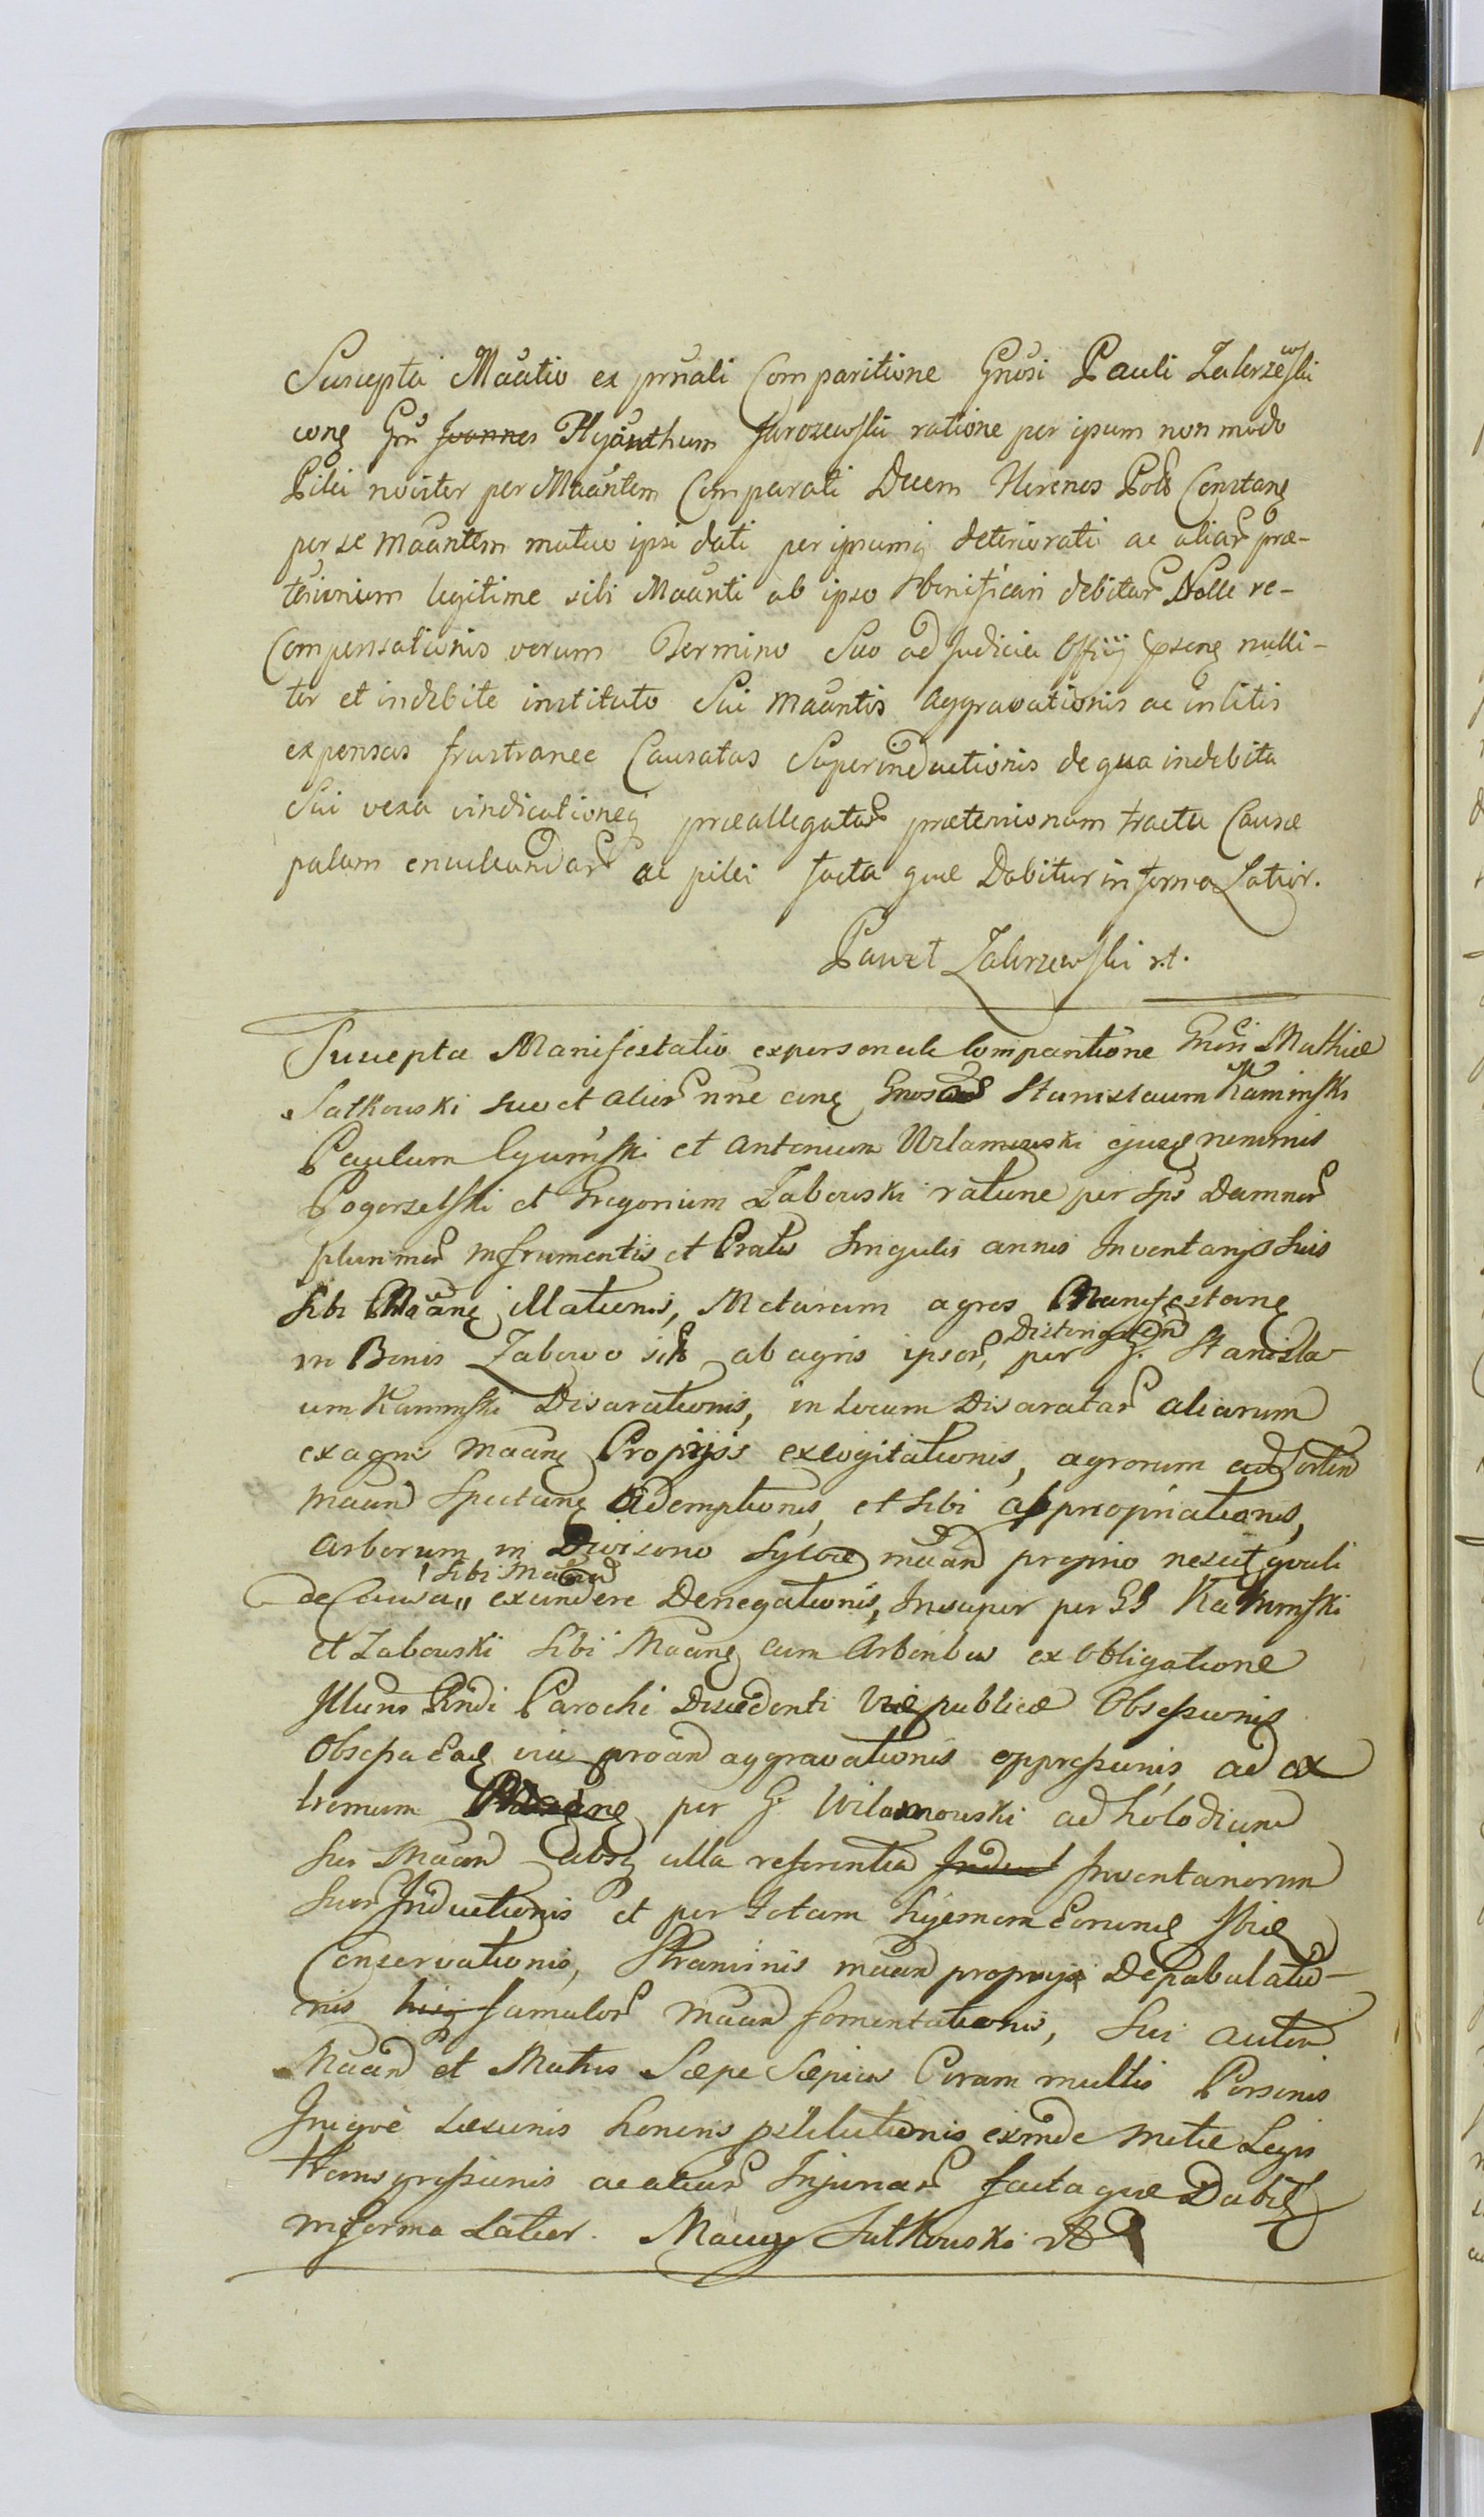 Suscepta Maãtio ex prsnali Comparitione Gnosi Pauli Zakrzewski
cong Gm Joannes Hyãnthum Jarozewski ratione per ipsum non modo
Pilei noviter per Maãntem Comparati Decem Florenos Pol Constang
per se Maãntem mutuo ipsi dati per ipsumq deteriorati ac aliar præ-
tensionum legitime sibi Maãnti ab ipso bonificari debitar Nolle re-
Compensationis verum Termino Suo ad Judicia Officij pseng nulli-
ter et indebite instituto Sui Maãntis Aggravationis ac in litis
expensas frustranee Causatas Superinductionis de qua indebita
Sui vexa vindicationeq præallegatar prætensionum tractu Causæ
palam enucleandar ac pilei facta quæ Dabitur in forma Latior.
Paweł Zakrzewski
Suscepta Manifestatio ex personali Comparitione Gnosi Mathiæ
Sutkowski suo et alior nne cong Gnosos Stanislaum Kaminski
Paulum et Antonium Wilamowski ejusq neminis
Pogorzelski et Gregorium Zabowski ratione per Ips Damnor
plurimor in frumentis et Pratis Singulis annis Inventarijs Suis
Sibi Maãng illationis, Metarum agros Manifestang
in Bonis Zabowo sit ab agris ipsor, Distinguen per G. Stanisla-
um Kaminski Disarationis, in Locum Disaratar aliarum
ex agris Maãng Proprijs excogitationis, agrorum ad Sortem
Maãn Spectang Ademptionis, et Sibi appropriationis,
Arborum in Diviso Sylvæ Maãn proprio nescit quali
de Causa Sibi Maãn exundere Denegationis, Insuper per GG Kaminski
et Zabowski Sibi Maãng cum Arboribus ex Obligatione
Illuris Rndi Parochi Discedenti Viæ publicæ Obsessionis
Obsessa Eaq via aggravationis oppressionis, ad ex
tremum per G. Wilamowski ad
Sui Maãn absq ulla referentia Induct Inventariorum
Suor Inductionis et per Totam hyemem Eorumq Ibiq
Conservationis, Straminis Maãn proprij Depabulatio-
nis hisq famulor Maãn fomentationis, Sui autem
Maãn et Matris Sæpe Sæpius Coram multis Personis
Iniqvè Læsionis honoris exinde metæ Legis
transgressionis ac aliar Injuriar facta quæ Dabit
in forma Latior. Maciey Sutkowski